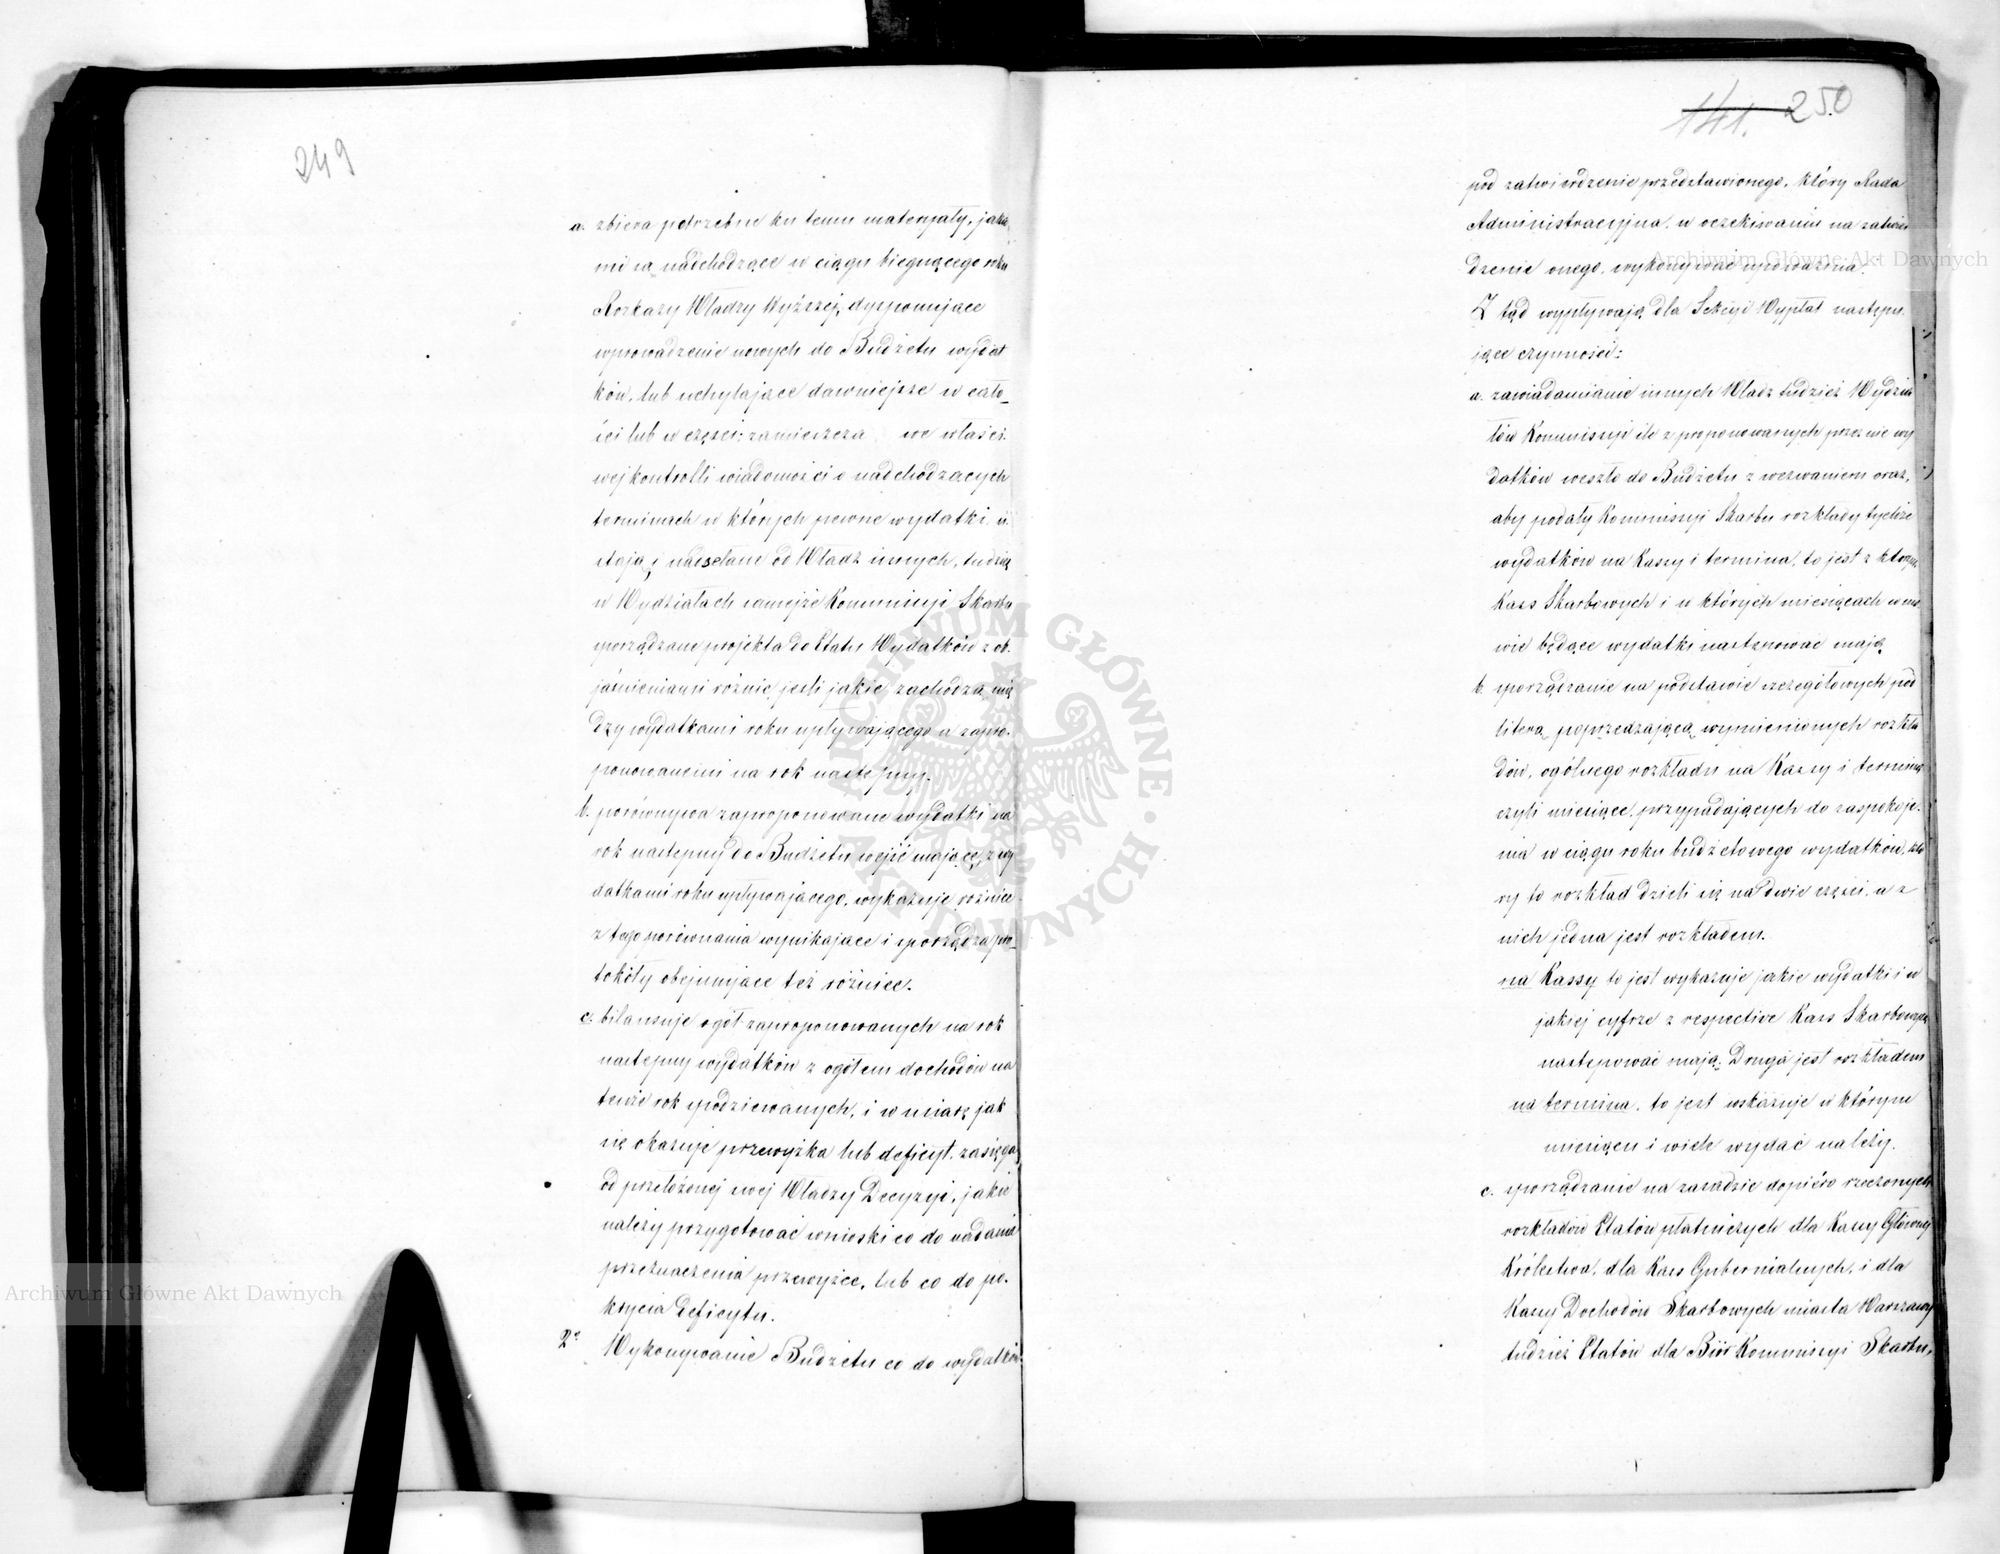 249
a. zbiera potrzebne ku temu materyały, jaki
mi są nadchodzące w ciągu biegnącego roku
Rozkazy Władzy Wyższej, dysponujące
wprowadzenie nowych do Budżetu wydat
ków, lub uchylające dawniejsze w cało_
ści lub w części; zamieszcza we właści.
wej kontrolli wiadomości o nadchodzących
terminach w których pewne wydatki u.
stają i nadesłane od Władz innych, tudzież
w Wydziałach samejże Kommissyi Skarbu
sporządzane projekta do Etatu Wydatków z ob.
jaśnieniami różnic, jeśli jakie, zachodzą mię
dzy wydatkami roku upływającego a zapro.
ponowanemi na rok następny.
b. porównywa zaproponowane wydatki na
rok następny do Budżetu wejść mające, z wy
datkami roku upływającego, wykazuje różnice
z tego porównania wynikające i sporządza pro_
tokóły obejmujące też różnice.
c. bilansuje ogół zaproponowanych na rok
następny wydatków z ogółem dochodów na
tenże rok spodziewanych, i w miarę jak
się okazuje przewyżka lub deficyt, zasięga
od przełożonej swej Władzy Decyzyi, jakie
należy przygotować wnioski co do nadania
przeznaczenia przewyżce, lub co do po.
krycia deficytu.
2° Wykonywanie Budżetu co do wydatków
141. 250
pod zatwierdzenie przedstawionego, który Rada
Administracyjna, w oczekiwaniu na zatwier
dzenie onego, wykonywać upoważnia.
Z tąd wypływają dla Sekcyi Wypłat następu.
jące czynności:
a. zawiadamianie innych Władz tudzież Wydzia
łów Kommissyi ile z proponowanych przez nie wy
datków weszło do Budżetu z wezwaniem oraz,
aby podały Kommissyi Skarbu rozkłady tychże
wydatków na Kassy i termina, to jest z których
Kass Skarbowych i w których miesiącach w mo
wie będące wydatki następować mają
b. sporządzanie na podstawie szczegółowych pod
literą poprzedzającą wymienionych rozkła
dów, ogólnego rozkładu na Kassy i termina
czyli miesiące, przypadających do zaspokoje.
nia w ciągu roku budżetowego wydatków, któ
ry to rozkład dzieli się na dwie części, a z
nich jedna jest rozkładem
na Kassy to jest wykazuje jakie wydatki i w
jakiej cyfrze z respective Kass Skarbowych
następować mają; Druga jest rozkładem
na termina, to jest wskazuje w którym
miesiącu i wiele wydać należy.
c. sporządzanie na zasadzie dopiéro rzeczonych
rozkładów Etatów płatniczych dla Kassy Głównej
Królestwa, dla Kass Gubernialnych, i dla
Kassy Dochodów Skarbowych miasta Warszawy
tudzież Etatów dla Biór Kommissyi Skarbu,
ARCHIWUM GŁÓWNE AKT DAWNYCH
Archiwum Główne Akt Dawnych
Archiwum Główne Akt Dawnych